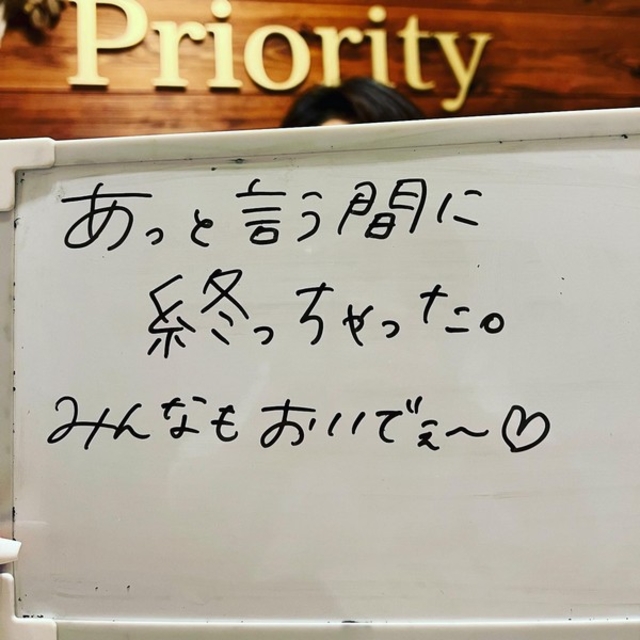 Priority
あっと言う間に
終っちゃった。
みんなもおいでぇ〜♡